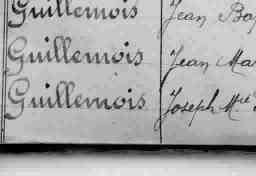 Guillemois Jean Bap
Guillemois Jean Ma
Guillemois Joseph Mie